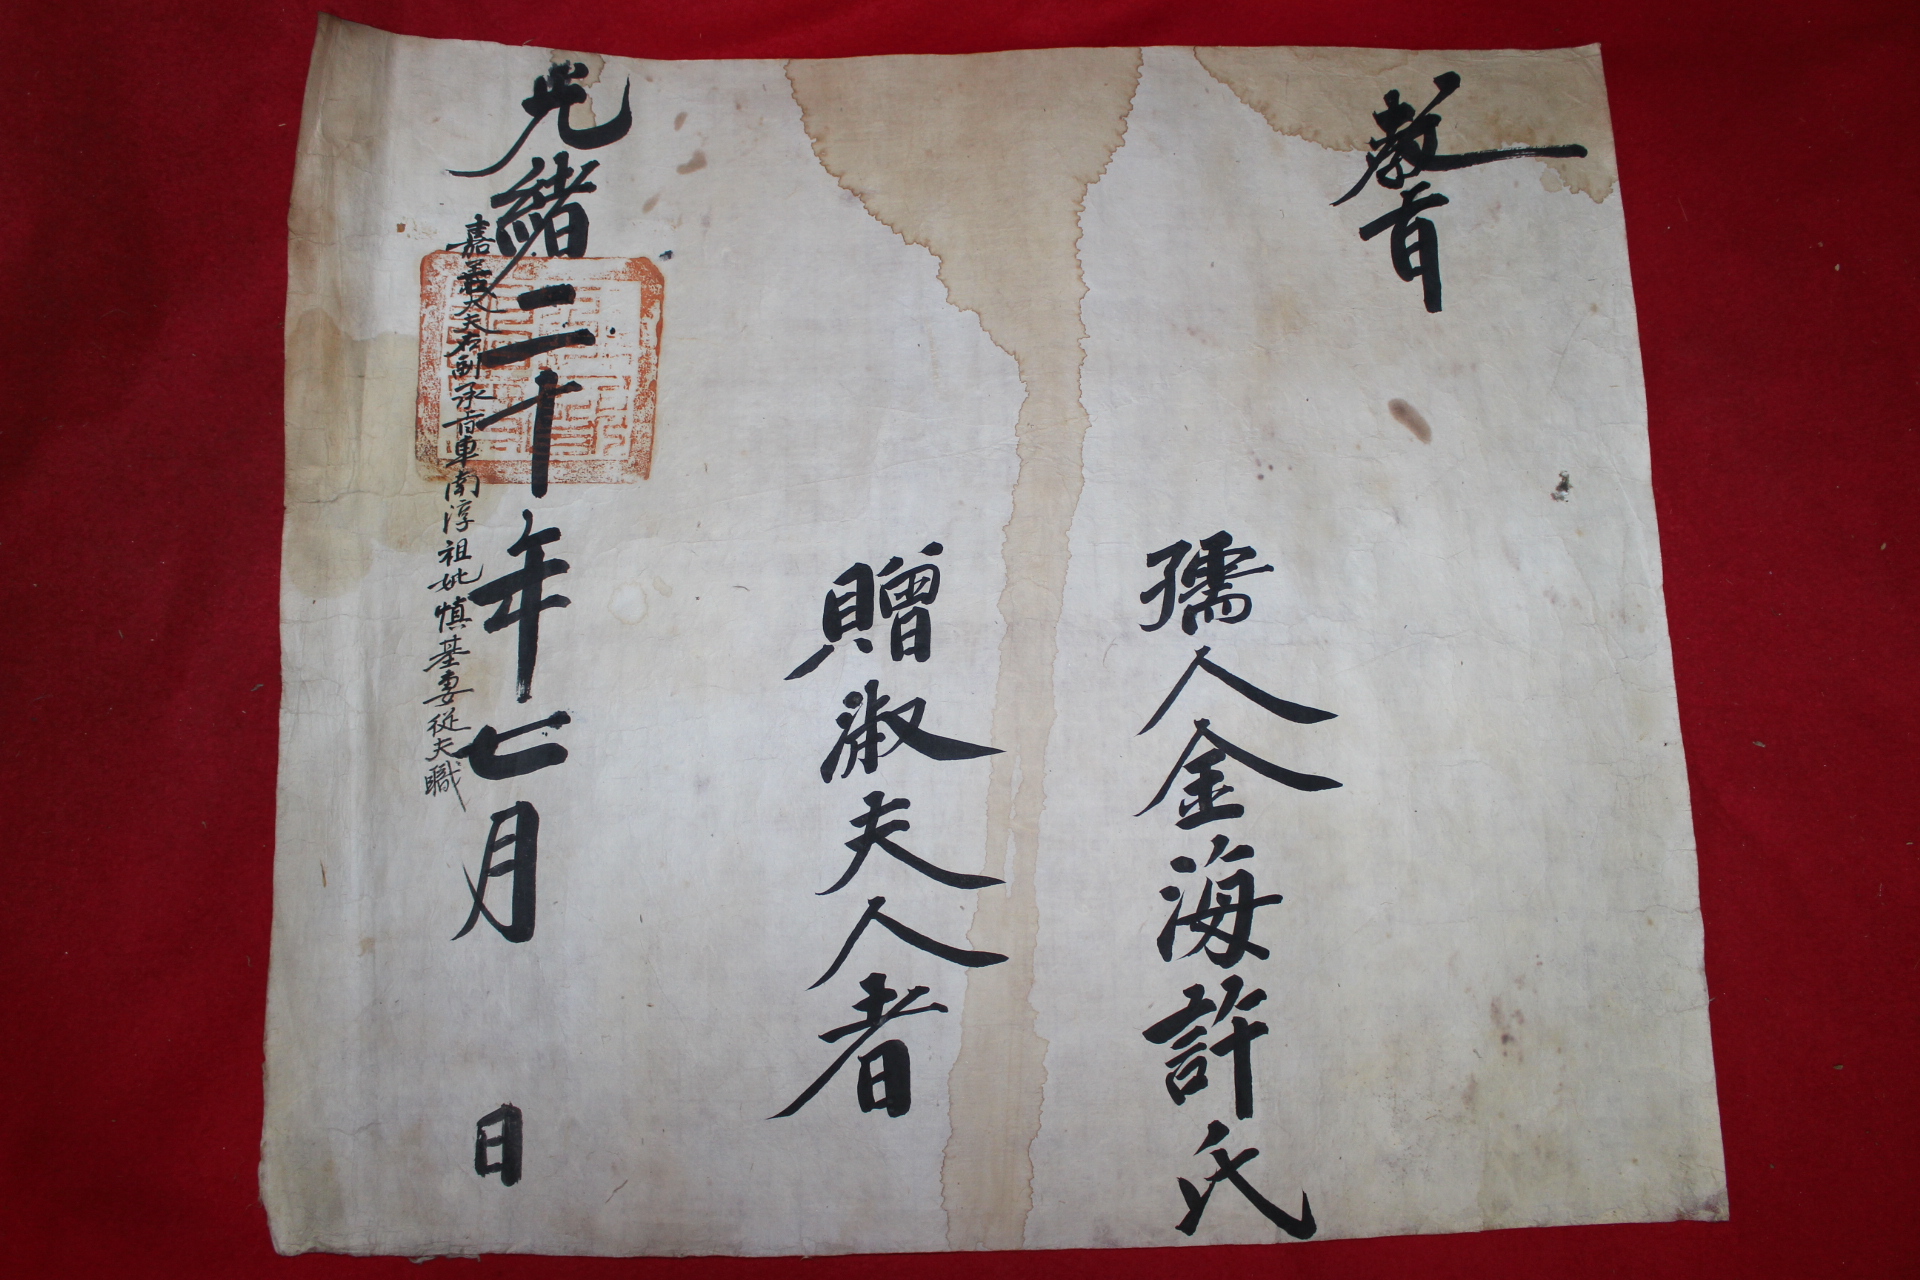 教旨
孺人金海許氏
贈淑夫人者
光緒二十年七月 日
嘉善大夫右副承旨車南淳祖妣慎基妻從夫職